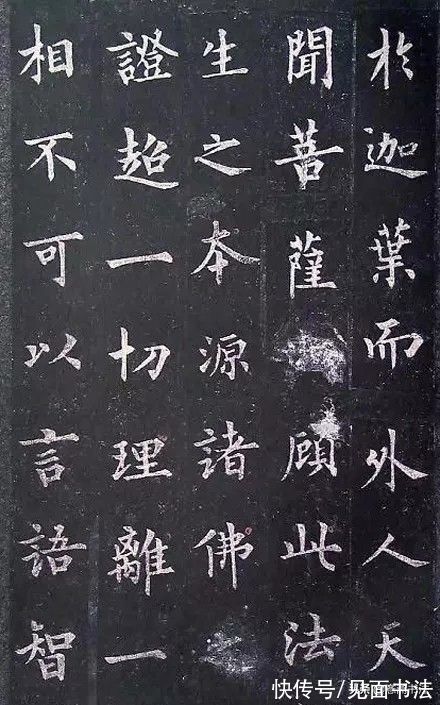 於迦葉而外人天
聞菩薩顧此法
生之本源諸佛之
證超一切理離一
相不可以言語智
快传号/见面书法